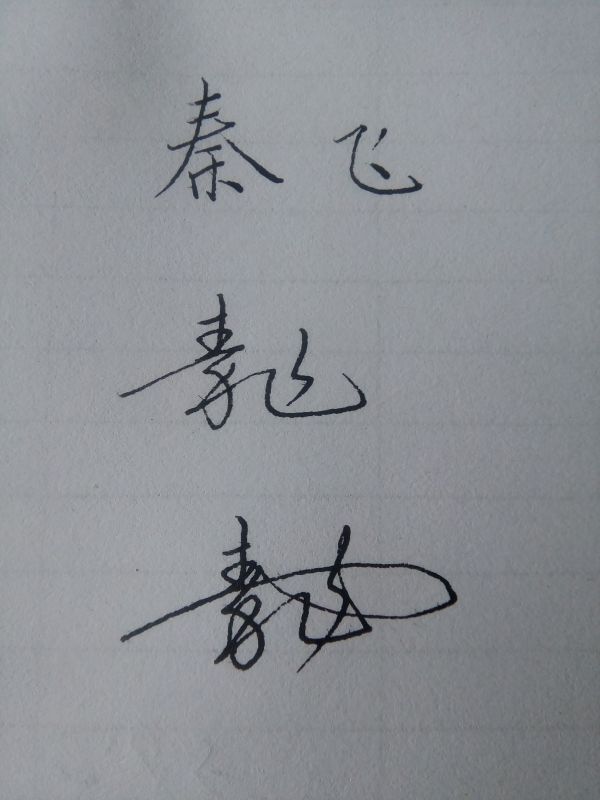 秦飞
秦飞
秦飞